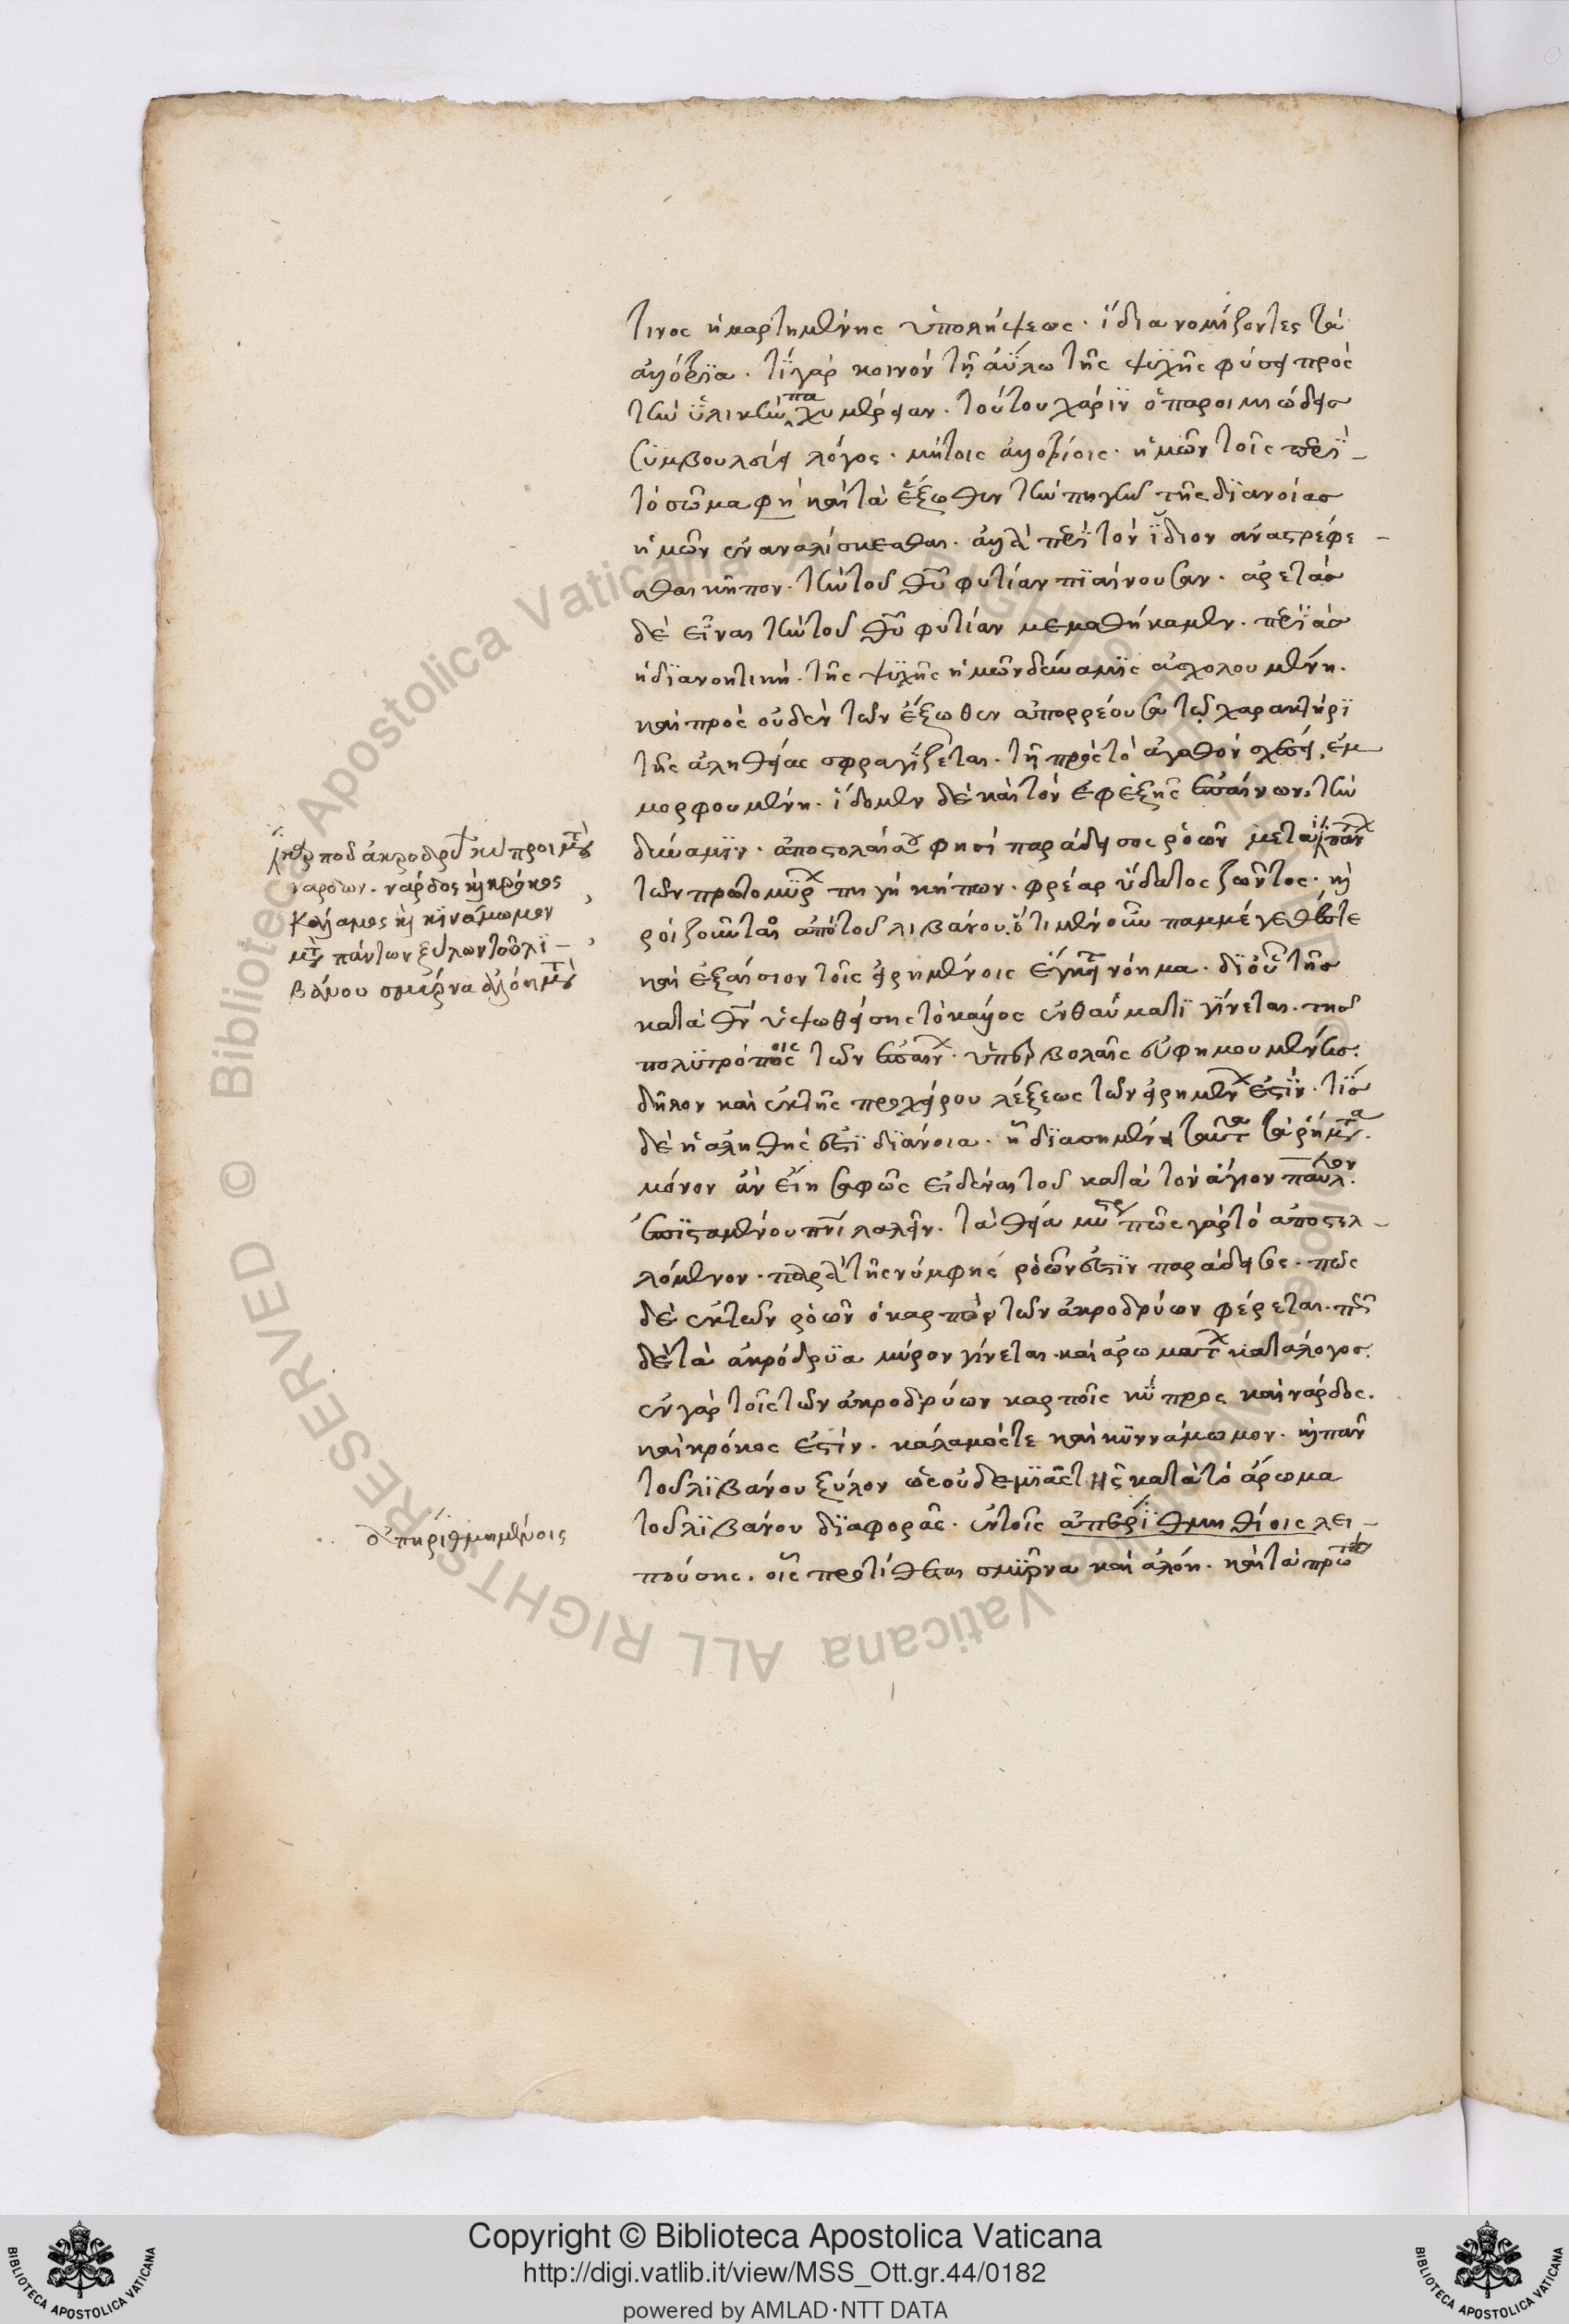 τινος ἡμαρτημένης ὑπολήψεως · ἴδια νομίζοντες τὰ
ἀλλότρϊα · τί γὰρ κοινὸν τῇ ἀΰλω τῆς ψϋχῆς φύσει πρὸς
τὴν ὑλικὴν παχυμέρειαν · τούτου χάρϊν ὁ παροιμιώδης
συμβουλεύει λόγος · μὴ τοῖς ἀλλοτρίοις · ἡμῶν τοῖς περῒ
τὸ σῶμα φη καὶ τὰ ἔξωθεν τὴν πηγὴν τῆς διανοίας
ἡμῶν ἐναναλίσκεσθαι · ἀλλὰ περῒ τὸν ἴδιον ἀναστρέφε-
σθαι κῆπον · τὴν τοῦ θῦ φυτίαν πϊαίνουσαν · ἀρετὰς
δὲ εἶναι τὴν τοῦ θῦ φυτίαν μεμαθήκαμεν · περῒ ἃς
ἡ δϊανοητικὴ · τῆς ψϋχῆς ἡμῶν δύναμϊς ἀσχολουμένη ·
καὶ πρὸς οὐδὲν τῶν ἔξωθεν ἀπορρέουσα τῷ χαρακτήρϊ
τῆς ἀληθείας σφραγΐζεται · τῇ πρὸς τὸ ἀγαθὸν σχέσει, ἐμ
μορφουμένη · ἴδομεν δὲ καὶ τὸν ἐφεξῆς ἐπαίνων · τὴν
δύναμϊν · ἀποστολαί σου φησὶ παράδεισος ῥοῶν μετὰ πάν
των πρωτομΰρ πηγὴ κήπων · φρέαρ ὕδατος ζῶντος · κὶ
ῥοιζοῦντος ἀπὸ τοῦ λιβάνου. ὅτι μὲν οὖν παμμέγεθές τε
καὶ ἐξαίσιον τοῖς εἰρημένοις ἔγκειτ νόημα · δϊ οὗ τῆς
κατὰ θν ὑψωθείσης τὸ κάλλος ἐν θαύματϊ γίνεται · τῆς
πολϋτρόποις τῶν ἐπαίν · ὑπερβολαῖς εὐφημουμένης.
δῆλον καὶ ἐκ τῆς προχείρου λέξεως τῶν εἰρημέν ἐστῒν · τίς
δὲ ἡ ἀληθής ἐστϊ δϊάνοια · ἣ δϊασημένει ταῦτα τὰ ῥήματα.
μόνον ἂν εἴη σαφῶς εἰδέναι τοῦ κατὰ τὸν ἅγιον παῦλον.
ἐπϊσταμένου πνι λαλεῖν · τὰ θεῖα μυς πῶς γὰρ τὸ ἀποστελ-
λόμενον · παρὰ τῆς νύμφης ῥοῶν ἐστῒν παράδεισος · πῶς
δὲ ἐκ τῶν ῥοῶν ὁ καρπὸς τῶν ἀκροδρύων φέρεται · πῶς
δὲ τὰ ἀκρόδρϋα μύρον γίνεται · καὶ ἀρωμάτ κατάλογος.
ἐν γὰρ τοῖς τῶν ἀκροδρύων καρποῖς κΰπρος καὶ νάρδος.
καὶ κρόκος ἐστίν · κάλαμός τε καὶ κϋννάμωμον · κὶ πᾶν
τοῦ λϊβάνου ξύλον ὡς οὐδεμϊᾶς τῆς κατὰ τὸ ἄρωμα
τοῦ λϊβάνου δϊαφορᾶς · ἐν τοῖς ἀπερϊθμηθίοις λει-
πούσης · οἷς προτίθεται σμΰρνα καὶ ἀλόη · καὶ τὰ πρῶτα
καρποῦ ἀκροδρύ κυπροι μετὰ
νάρδων · νάρδος κὶ κρόκος
κάλαμος κὶ κϊνάμωμον
μετὰ πάντων ξύλων τοῦ λϊ-
βάνου σμύρνα ἀλόη μετὰ
ἀπηριθμημένοις
Copyright © Biblioteca Apostolica Vaticana
http://digi.vatlib.it/view/MSS_Ott.gr.44/0182
powered by AMLAD·NTT DATA
BIBLIOTECA APOSTOLICA VATICANA
BIBLIOTECA APOSTOLICA VATICANA
© Biblioteca Apostolica Vaticana ALL RIGHTS RESERVED
© Biblioteca Apostolica Vaticana ALL RIGHTS RESERVED